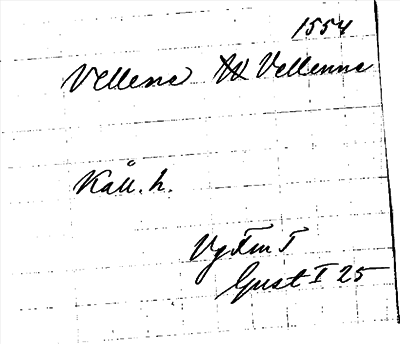 1554
Vellena W Vellenna
Kåll. h.
Vg Fm T
Gust I 25